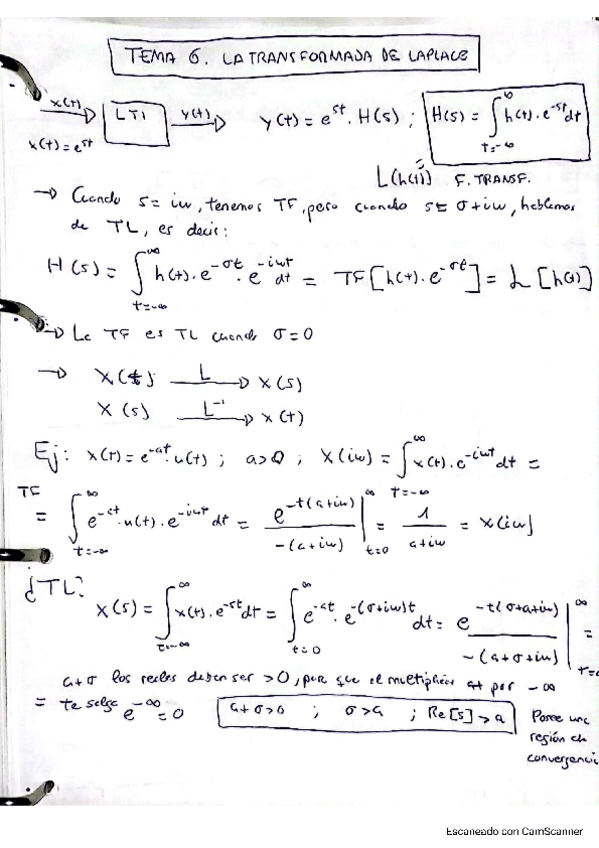 TEMA 6. LA TRANSFORMADA DE LAPLACE
x(t) LTI y(t) y(t) = e^st · H(s) ; H(s) = ∫_{t=-∞}^{∞} h(t) · e^-st dt
x(t) = e^st
L(h(t)) F. TRANSF.
→ Cuando s = iω, tenemos TF, pero cuando s = σ + iω, hablemos
de TL, es decir:
H(s) = ∫_{t=-∞}^{∞} h(t) · e^-σt · e^-iωt dt = TF[h(t) · e^-σt] = L[h(t)]
→ La TF es TL cuando σ = 0
→ X(t) —L→ X(s)
X(s) —L^-1→ x(t)
Ej: x(t) = e^-at · u(t) ; a>0 ; X(iω) = ∫_{t=-∞}^{∞} x(t) · e^-iωt dt =
TF
= ∫_{t=-∞}^{∞} e^-at · u(t) · e^-iωt dt = e^-t(a+iω) / -(a+iω) |_{t=0}^{∞} = 1 / a+iω = X(iω)
¿TL?
X(s) = ∫_{t=-∞}^{∞} x(t) · e^-st dt = ∫_{t=0}^{∞} e^-at · e^-(σ+iω)t dt = e^-t(σ+a+iω) / -(a+σ+iω) |_{t=0}^{∞} =
a+σ los reales deben ser >0, para que el multiplicar por -∞
= te salga e^-∞ = 0 a+σ>0 ; σ>a ; Re[s]>a Posee una
región de
convergenci
Escaneado con CamScanner